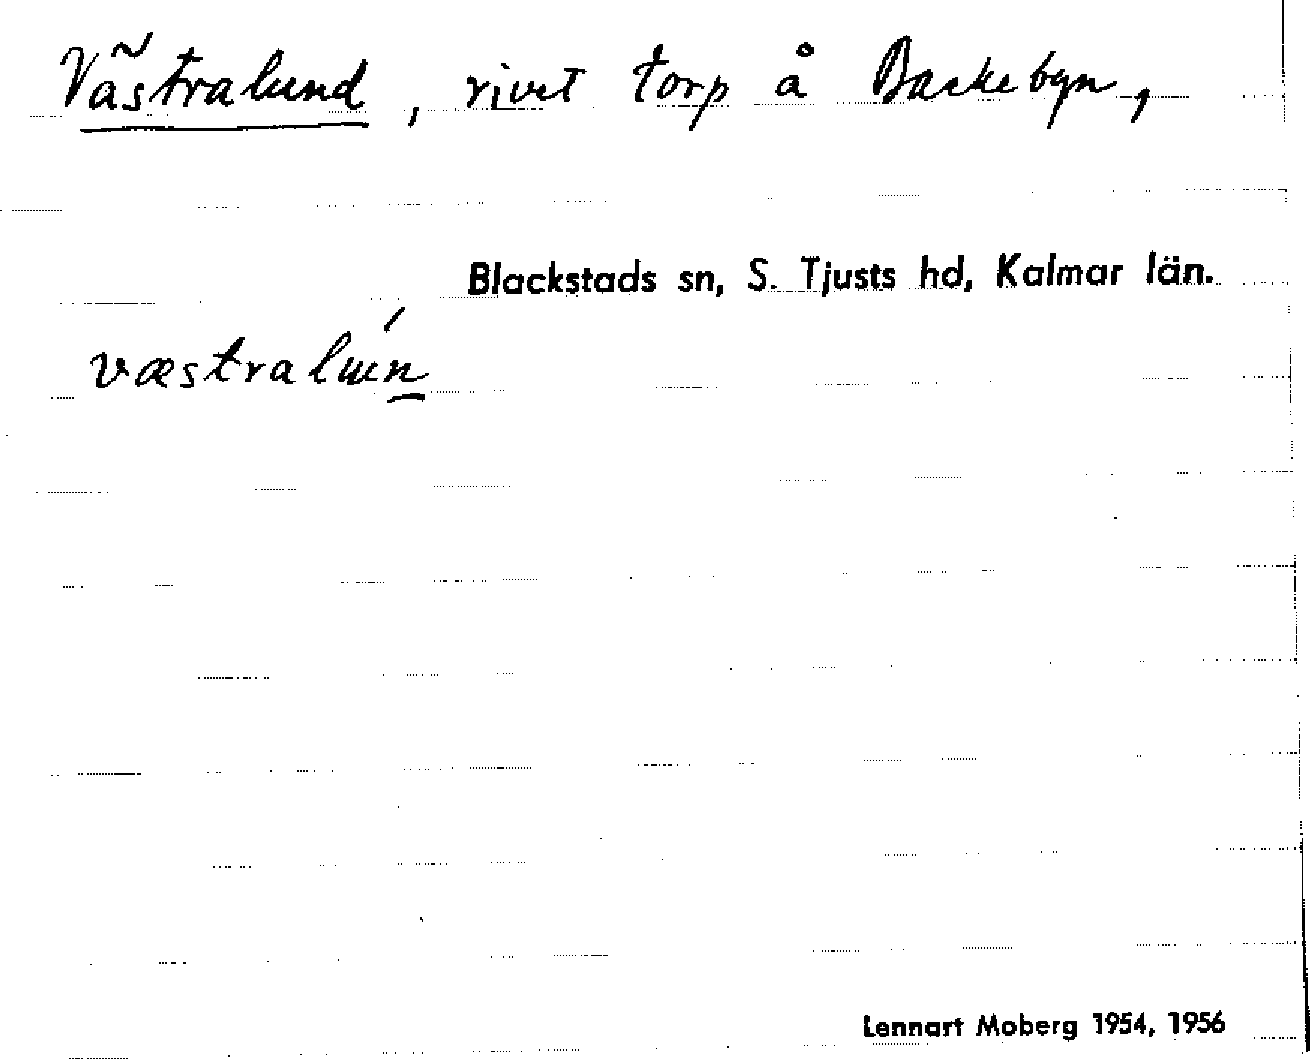 Västralund, rivet torp å Backebyn,
Blackstads sn, S. Tjusts hd, Kalmar län.
væstralún
Lennart Moberg 1954, 1956